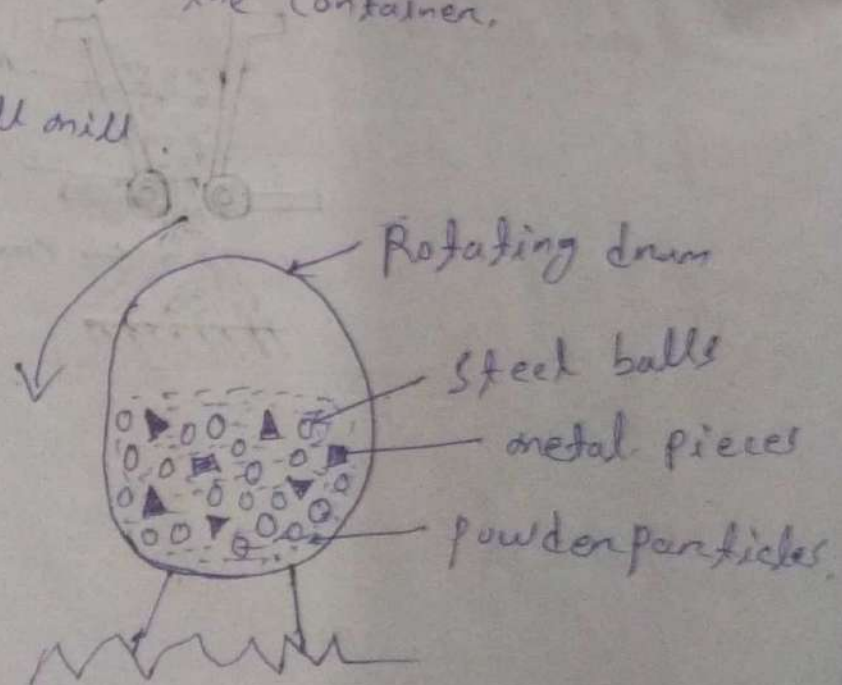 the container.
ll mill
Rotating drum
Steel balls
metal pieces
powder particles.